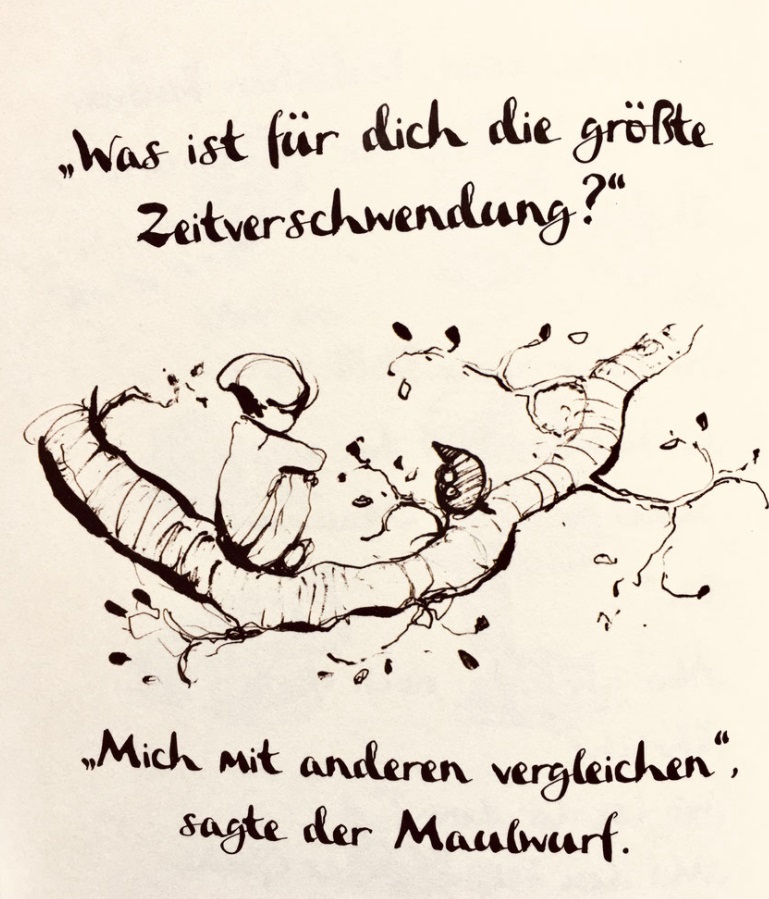 „Was ist für dich die größte
Zeitverschwendung?“
„Mich mit anderen vergleichen“,
sagte der Maulwurf.